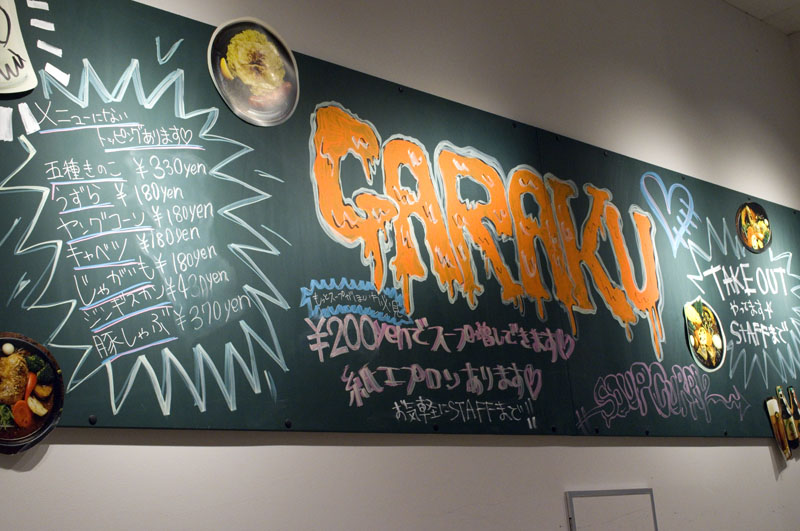 メニューにない
トッピングあります♡
五種きのこ ¥330yen
うずら ¥180yen
ヤングコーン ¥180yen
キャベツ ¥180yen
じゃがいも ¥180yen
ジンギスカン ¥420yen
豚しゃぶ ¥370yen
GARAKU
もっとスープがほしい
¥200yenでスープ増しできます♡
紙エプロンあります♡
お気軽にSTAFFまで!!
SOUPCURRY
TAKE OUT
やってます
STAFFまで